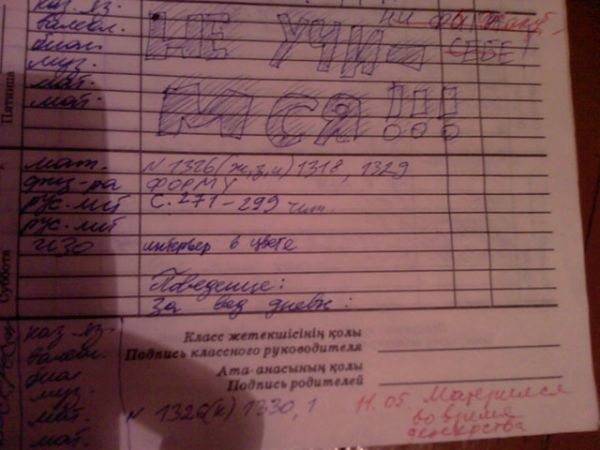 каз. яз.
валеол.
биол.
муз.
мат.
мат.
НЕ УЧИ-
СЕБЕ!
МСЯ!!!
Пятница
мат. N 1326(ж,з,и) 1318, 1329
физ-ра ФОРМУ
рус. лит С. 271-299 чит.
рус. лит
изо интерьер в цвете
Поведение:
За вед дневн:
Суббота
каз. яз.
валеол.
биол.
муз.
мат.
мат.
Класс жетекшісінің қолы
Подпись классного руководителя
Ата-анасының қолы
Подпись родителей
N 1326(к) 1330, 1
11.05. Матерился
во время
дежурства